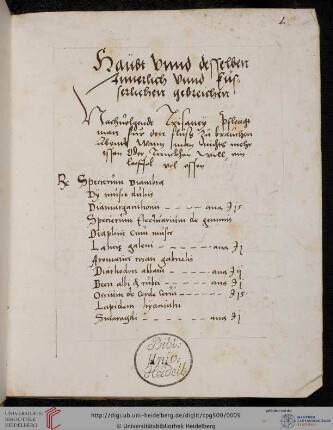 1.
Haubt Vnnd desselben
Innerlich Vnnd Eus-
serlichen gebrechen
Nachuolgende Trisaney Pflengt
man für den flusz zu brauchen
Abent Wann man nichts mehr
essen oder trincken will, ein
löffel vol essen
R Specierum Diambra
Dy musci dulcis
Diamargariton - - - - ana ʒ js
Specierum Electuarium de gemmis
Diapliris cum musco
Laetitiae galeni - - - ana ʒ j
Aromatici rosati gabrielis
Diarhodon abbatis - - - ana ʒ ij
Been albi & rubei - - - ana ʒ j
Ossium de corde cerui - - - ana ʒ js
Lapidum hyacinthi
Smaragdi - - - - - - ana ʒ j
Bibl.
Univ.
Heidelb.
UNIVERSITÄTS-
BIBLIOTHEK
HEIDELBERG
http://digi.ub.uni-heidelberg.de/diglit/cpg500/0005
© Universitätsbibliothek Heidelberg